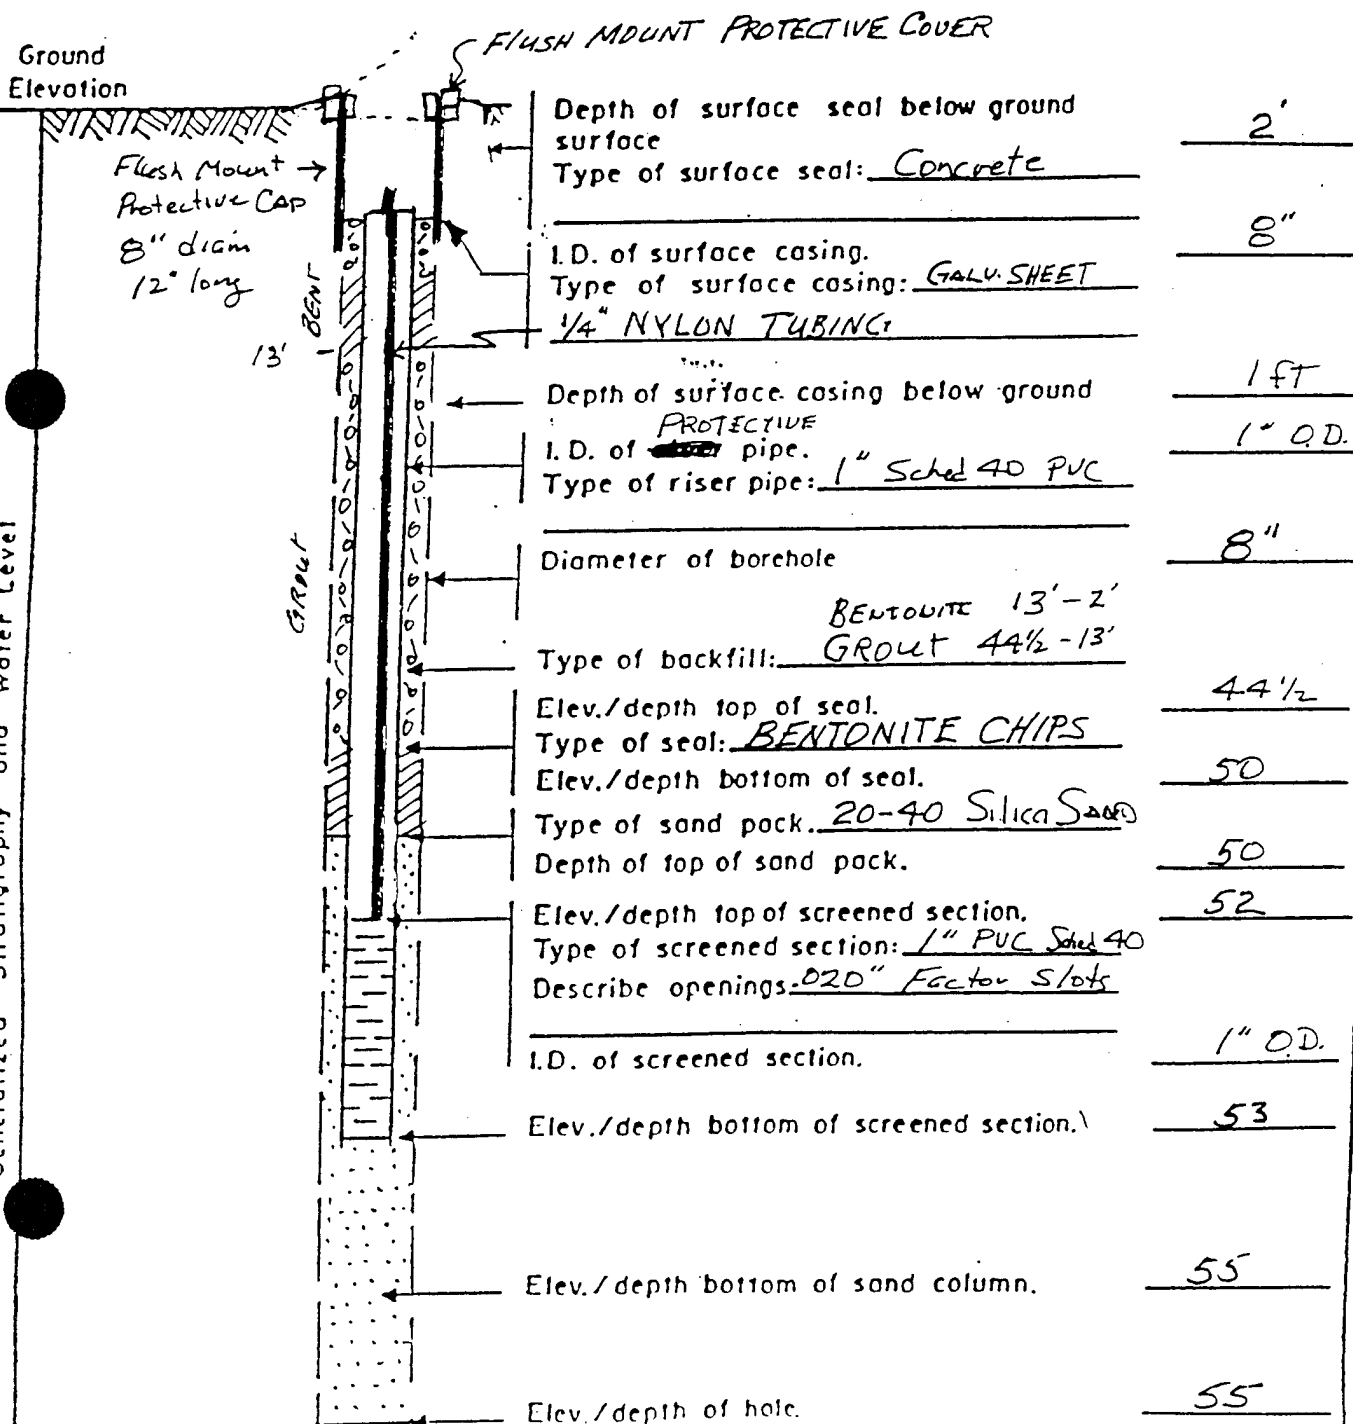 FLUSH MOUNT PROTECTIVE COVER
Ground
Elevation
Flush Mount
Protective Cap
8" diam
12" long
BENT
13'
GROUT
Generalized Stratigraphy and Water Level
Depth of surface seal below ground
surface 2'
Type of surface seal: Concrete
I.D. of surface casing. 8"
Type of surface casing: GALV. SHEET
1/4" NYLON TUBING
Depth of surface casing below ground 1 FT
PROTECTIVE
I.D. of pipe. 1" O.D.
Type of riser pipe: 1" Sched 40 PVC
Diameter of borehole 8"
BENTONITE 13'-2'
Type of backfill: GROUT 44 1/2 -13'
Elev./depth top of seal. 44 1/2
Type of seal: BENTONITE CHIPS
Elev./depth bottom of seal. 50
Type of sand pack. 20-40 Silica SAND
Depth of top of sand pack. 50
Elev./depth top of screened section. 52
Type of screened section: 1" PVC Sched 40
Describe openings. .020" Factor Slots
I.D. of screened section. 1" O.D.
Elev./depth bottom of screened section. 53
Elev./depth bottom of sand column. 55
Elev./depth of hole. 55